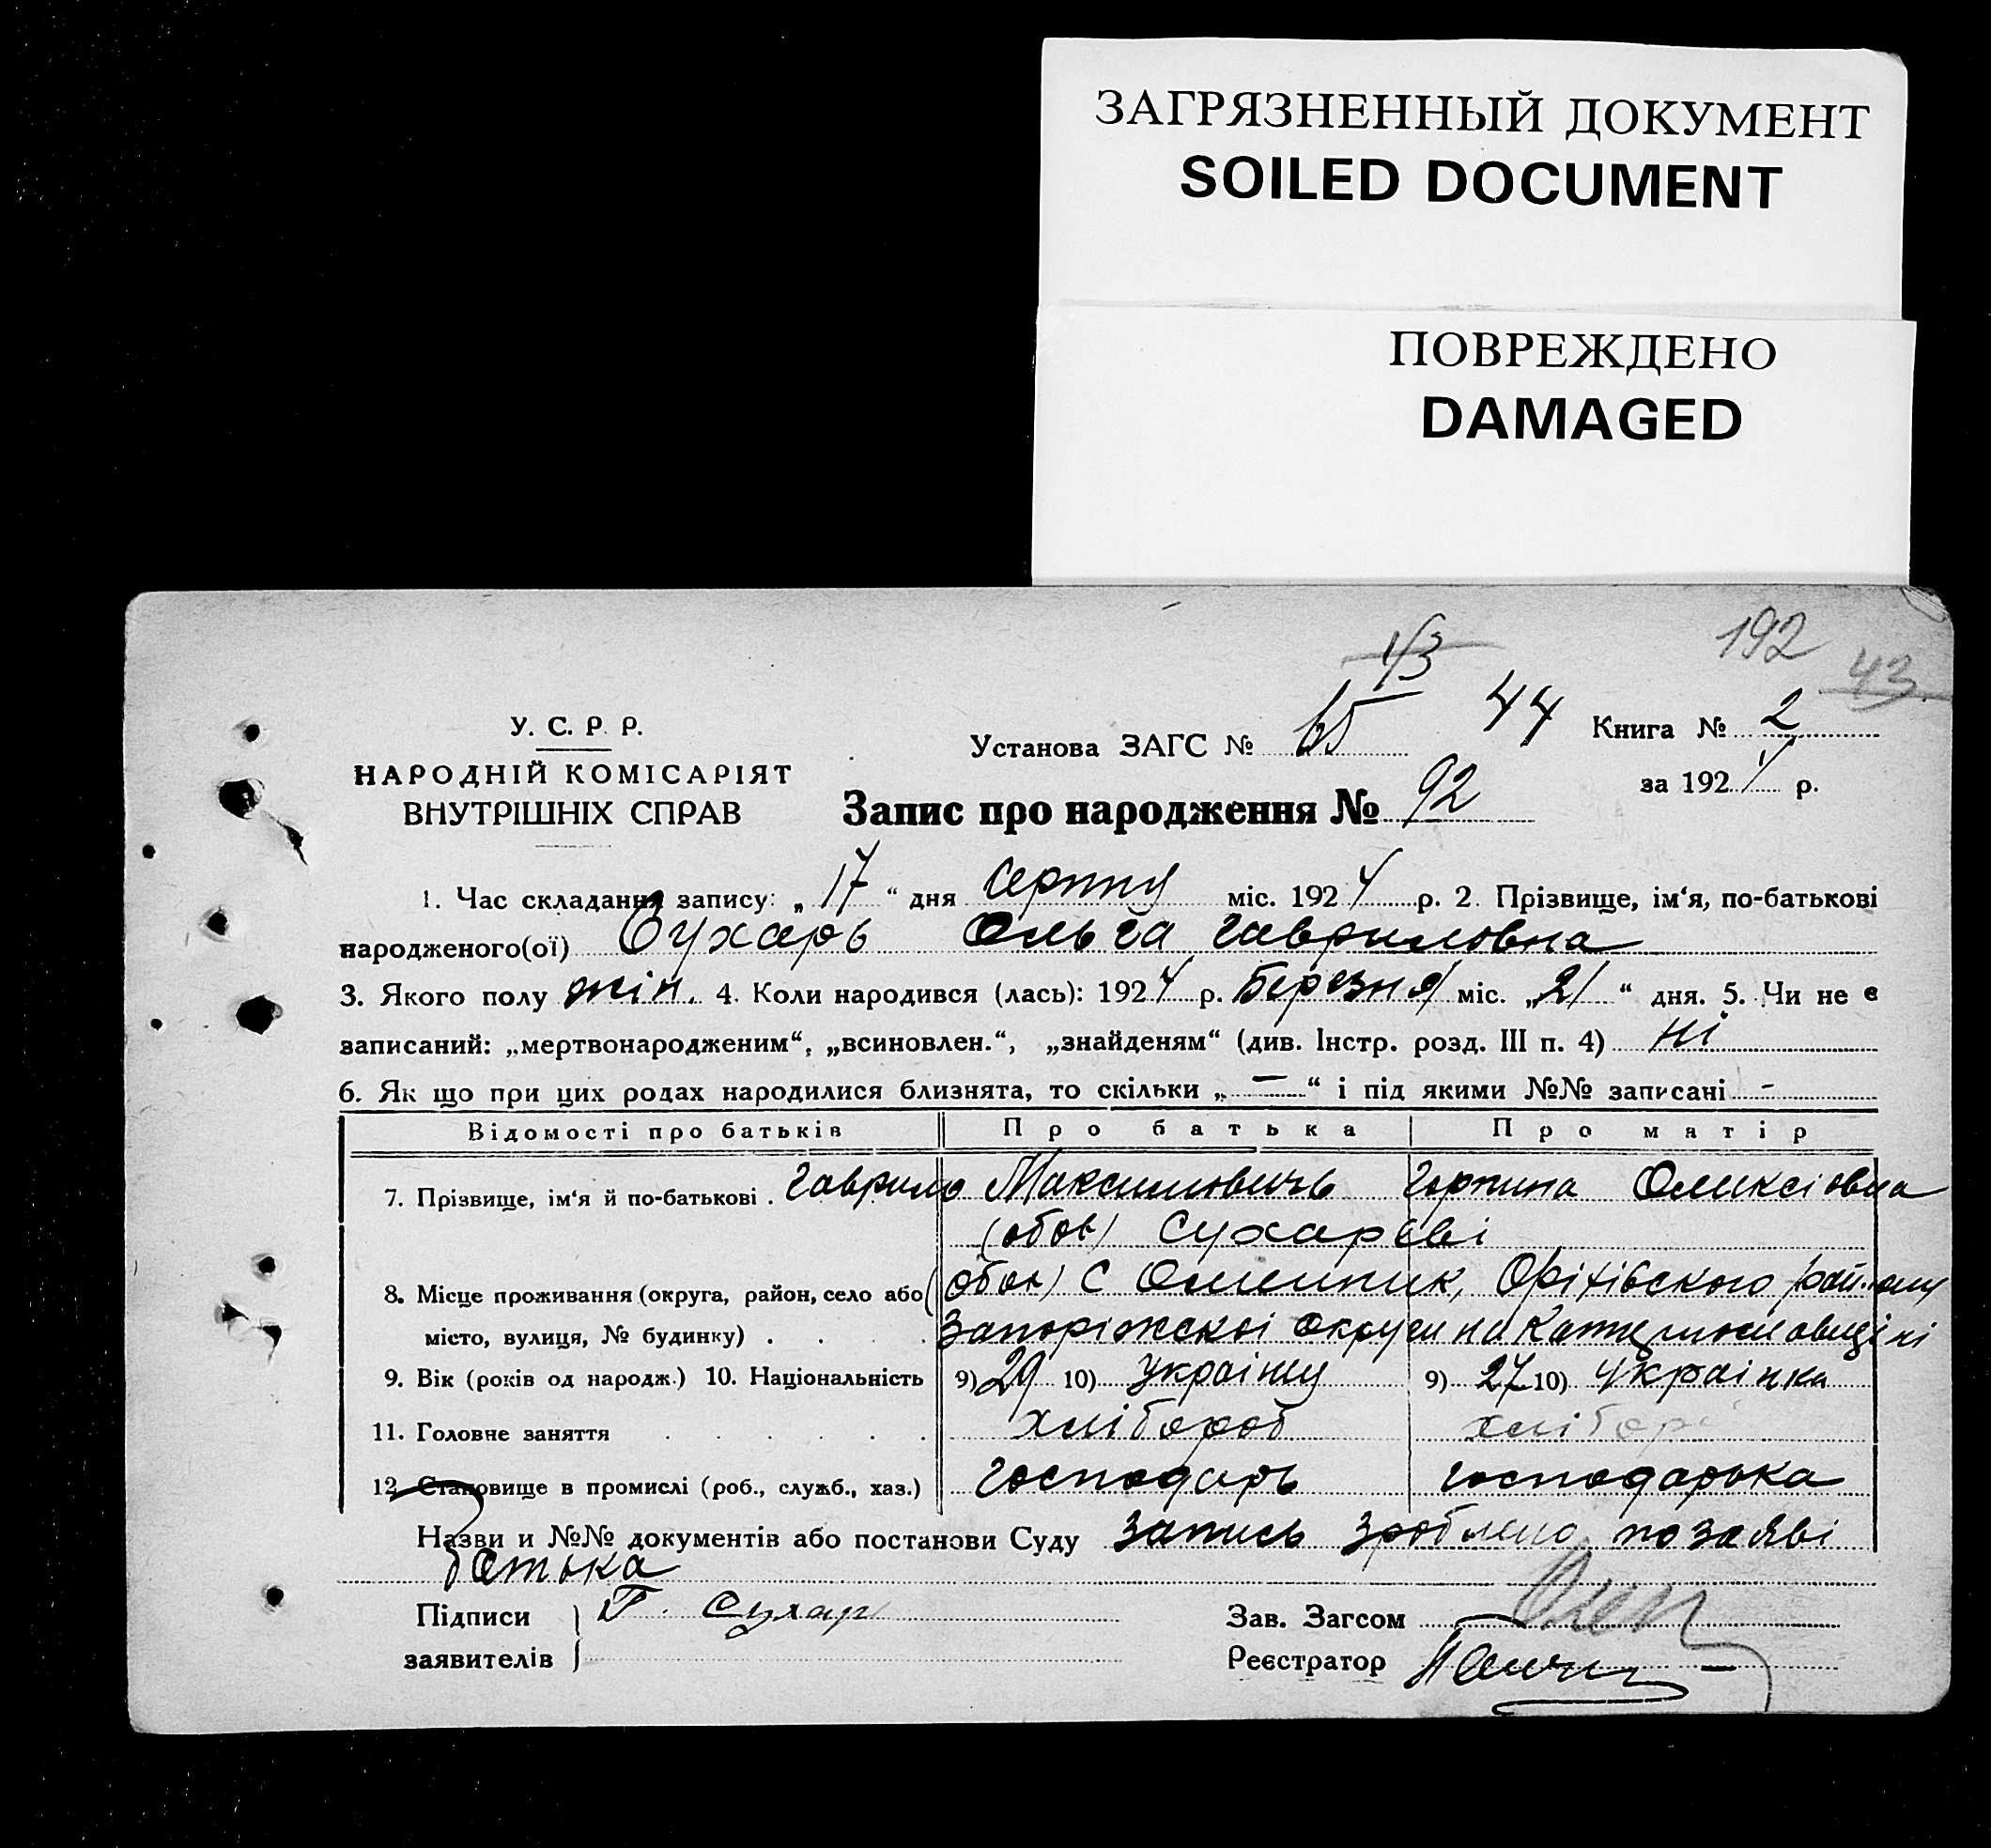 ЗАГРЯЗНЕННЫЙ ДОКУМЕНТ
SOILED DOCUMENT
ПОВРЕЖДЕНО
DAMAGED
192
43
43
У. С. Р. Р.
НАРОДНІЙ КОМІСАРІЯТ
ВНУТРІШНІХ СПРАВ
Установа ЗАГС № 65 44 Книга № 2
за 1924 р.
Запис про народження № 92
1. Час складання запису: „17“ дня серпня міс. 1924 р. 2. Прізвище, ім‘я, по-батькові
народженого(ої) Сухарь Ольга Гавриловна
3. Якого полу жін. 4. Коли народився (лась): 1924 р. Березня міс. „21“ дня. 5. Чи не є
записаний: „мертвонародженим“, „всиновлен.“, „знайденям“ (див. Інстр. розд. III п. 4) ні
6. Як що при цих родах народилися близнята, то скільки „—“ і під якими №№ записані -
Відомості про батьків Про батька Про матір
7. Прізвище, ім‘я й по-батькові . Гаврило Максимовичь Горпина Олексіовна
(обоє) Сухареві
8. Місце проживання (округа, район, село або (обоє) С Омельник, Оріхівского району
місто, вулиця, № будинку) . . . . Запоріжскої округи на Катеринославщіні
9. Вік (років од народж.) 10. Національність 9) 29 10) украінец 9) 27 10) украінка
11. Головне заняття . . . . . . хлібороб хлібор
12. Становище в промислі (роб., служб., хаз.) господарь господарька
Назви и №№ документів або постанови Суду запись зроблено по заяві
батька
Підписи Г. Сухар Зав. Загсом
заявителів Реєстратор